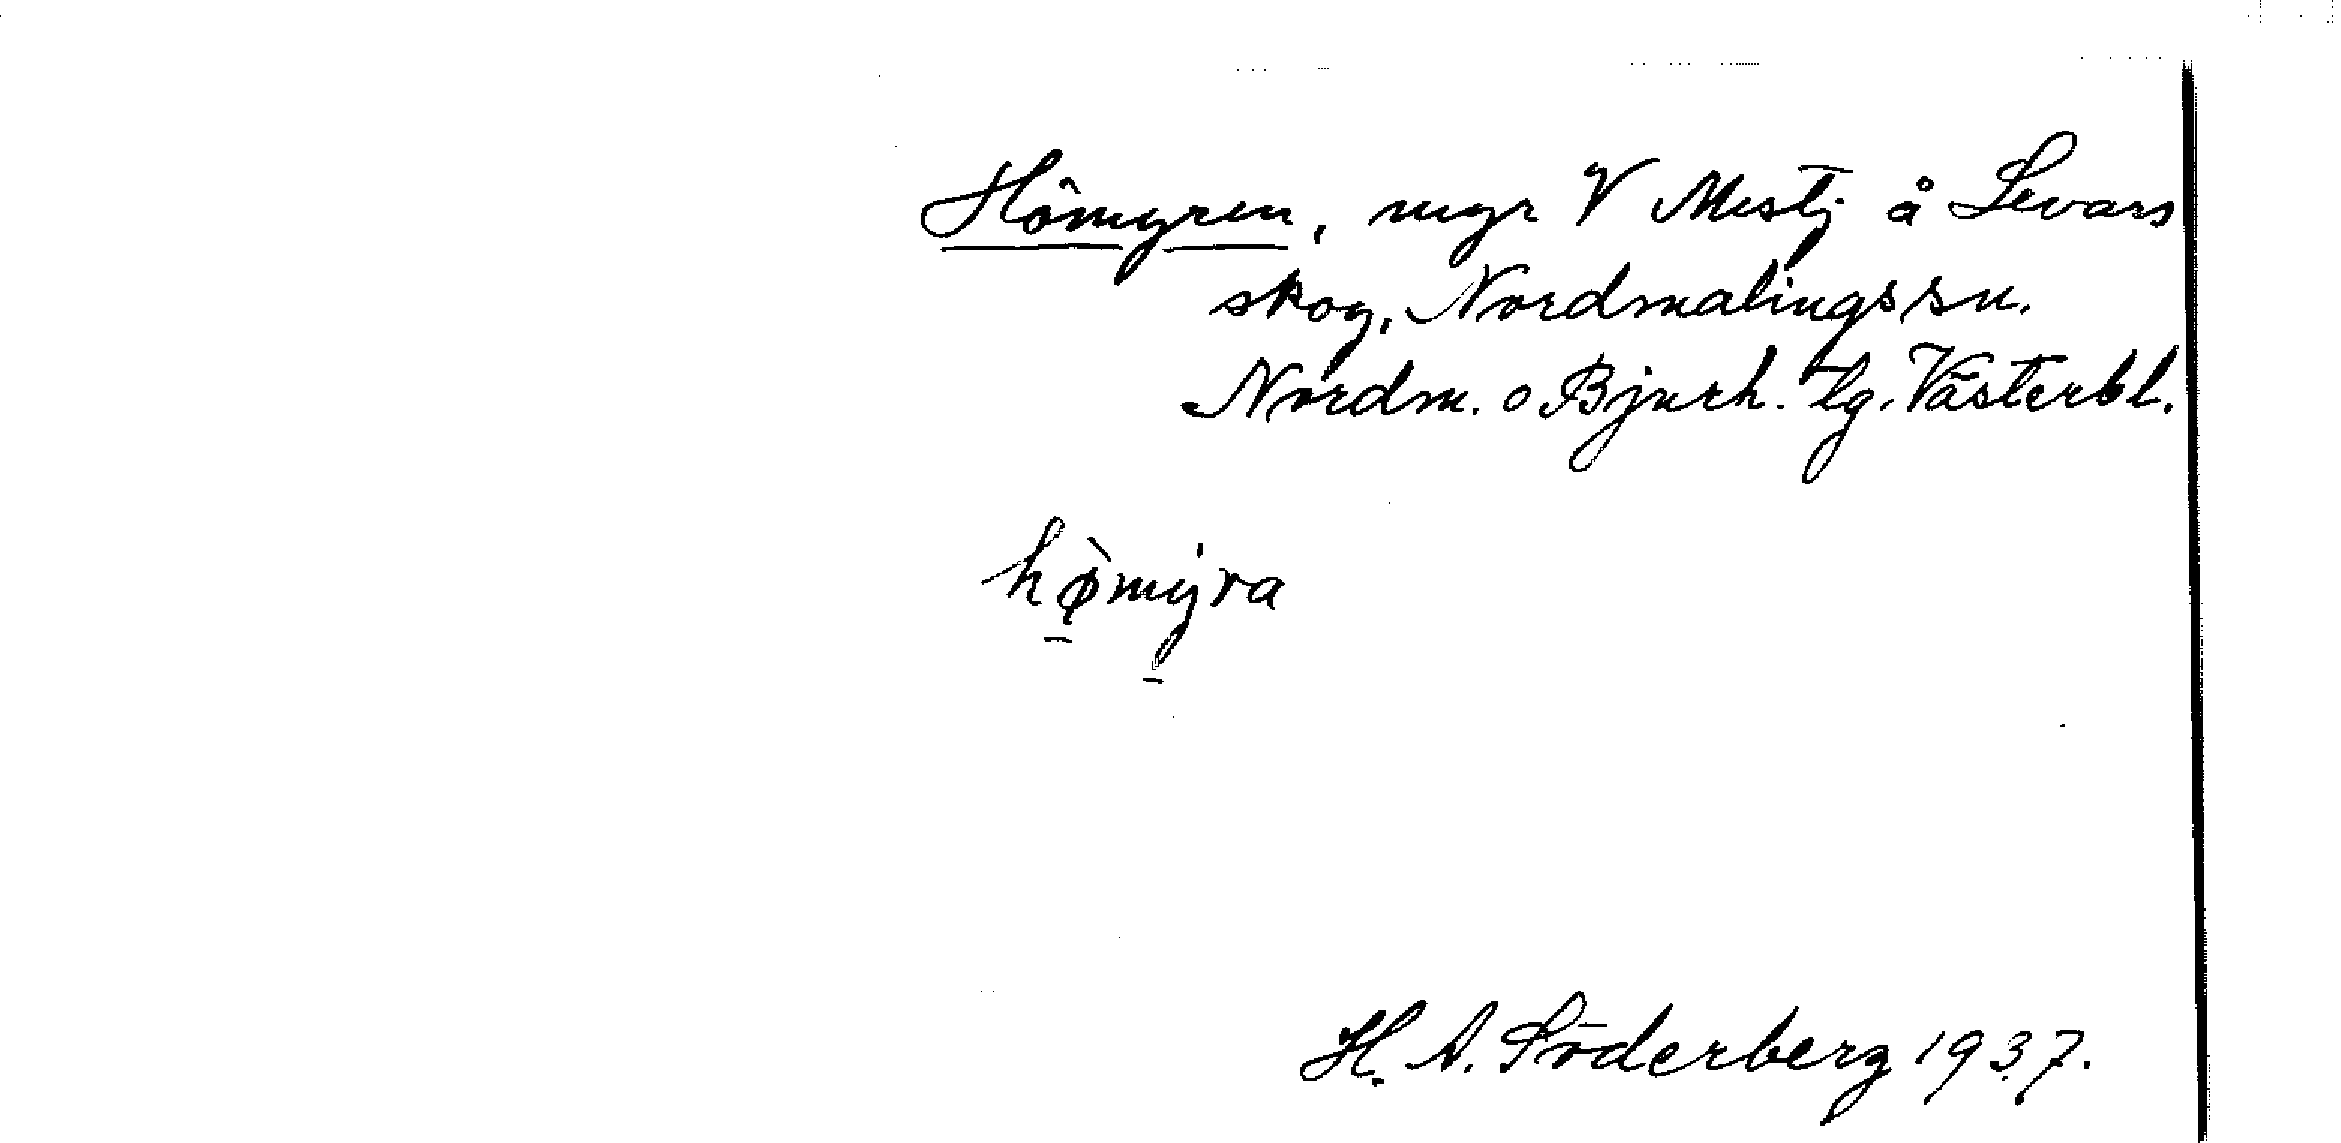 Hömyren, myr V Mestj å Levars
skog, Nordmalings sn.
Nordm. o Bjurh. tg. Västerbl.
hø̀mỳra
H. A. Söderberg 1937.